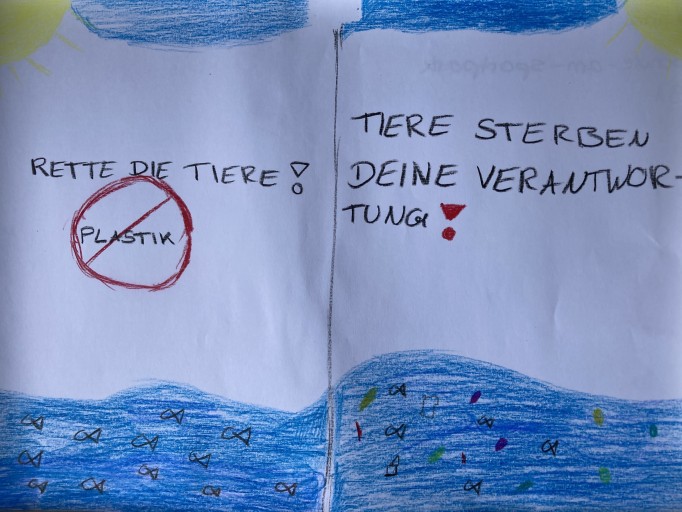 RETTE DIE TIERE!
PLASTIK
TIERE STERBEN
DEINE VERANTWOR-
TUNG!